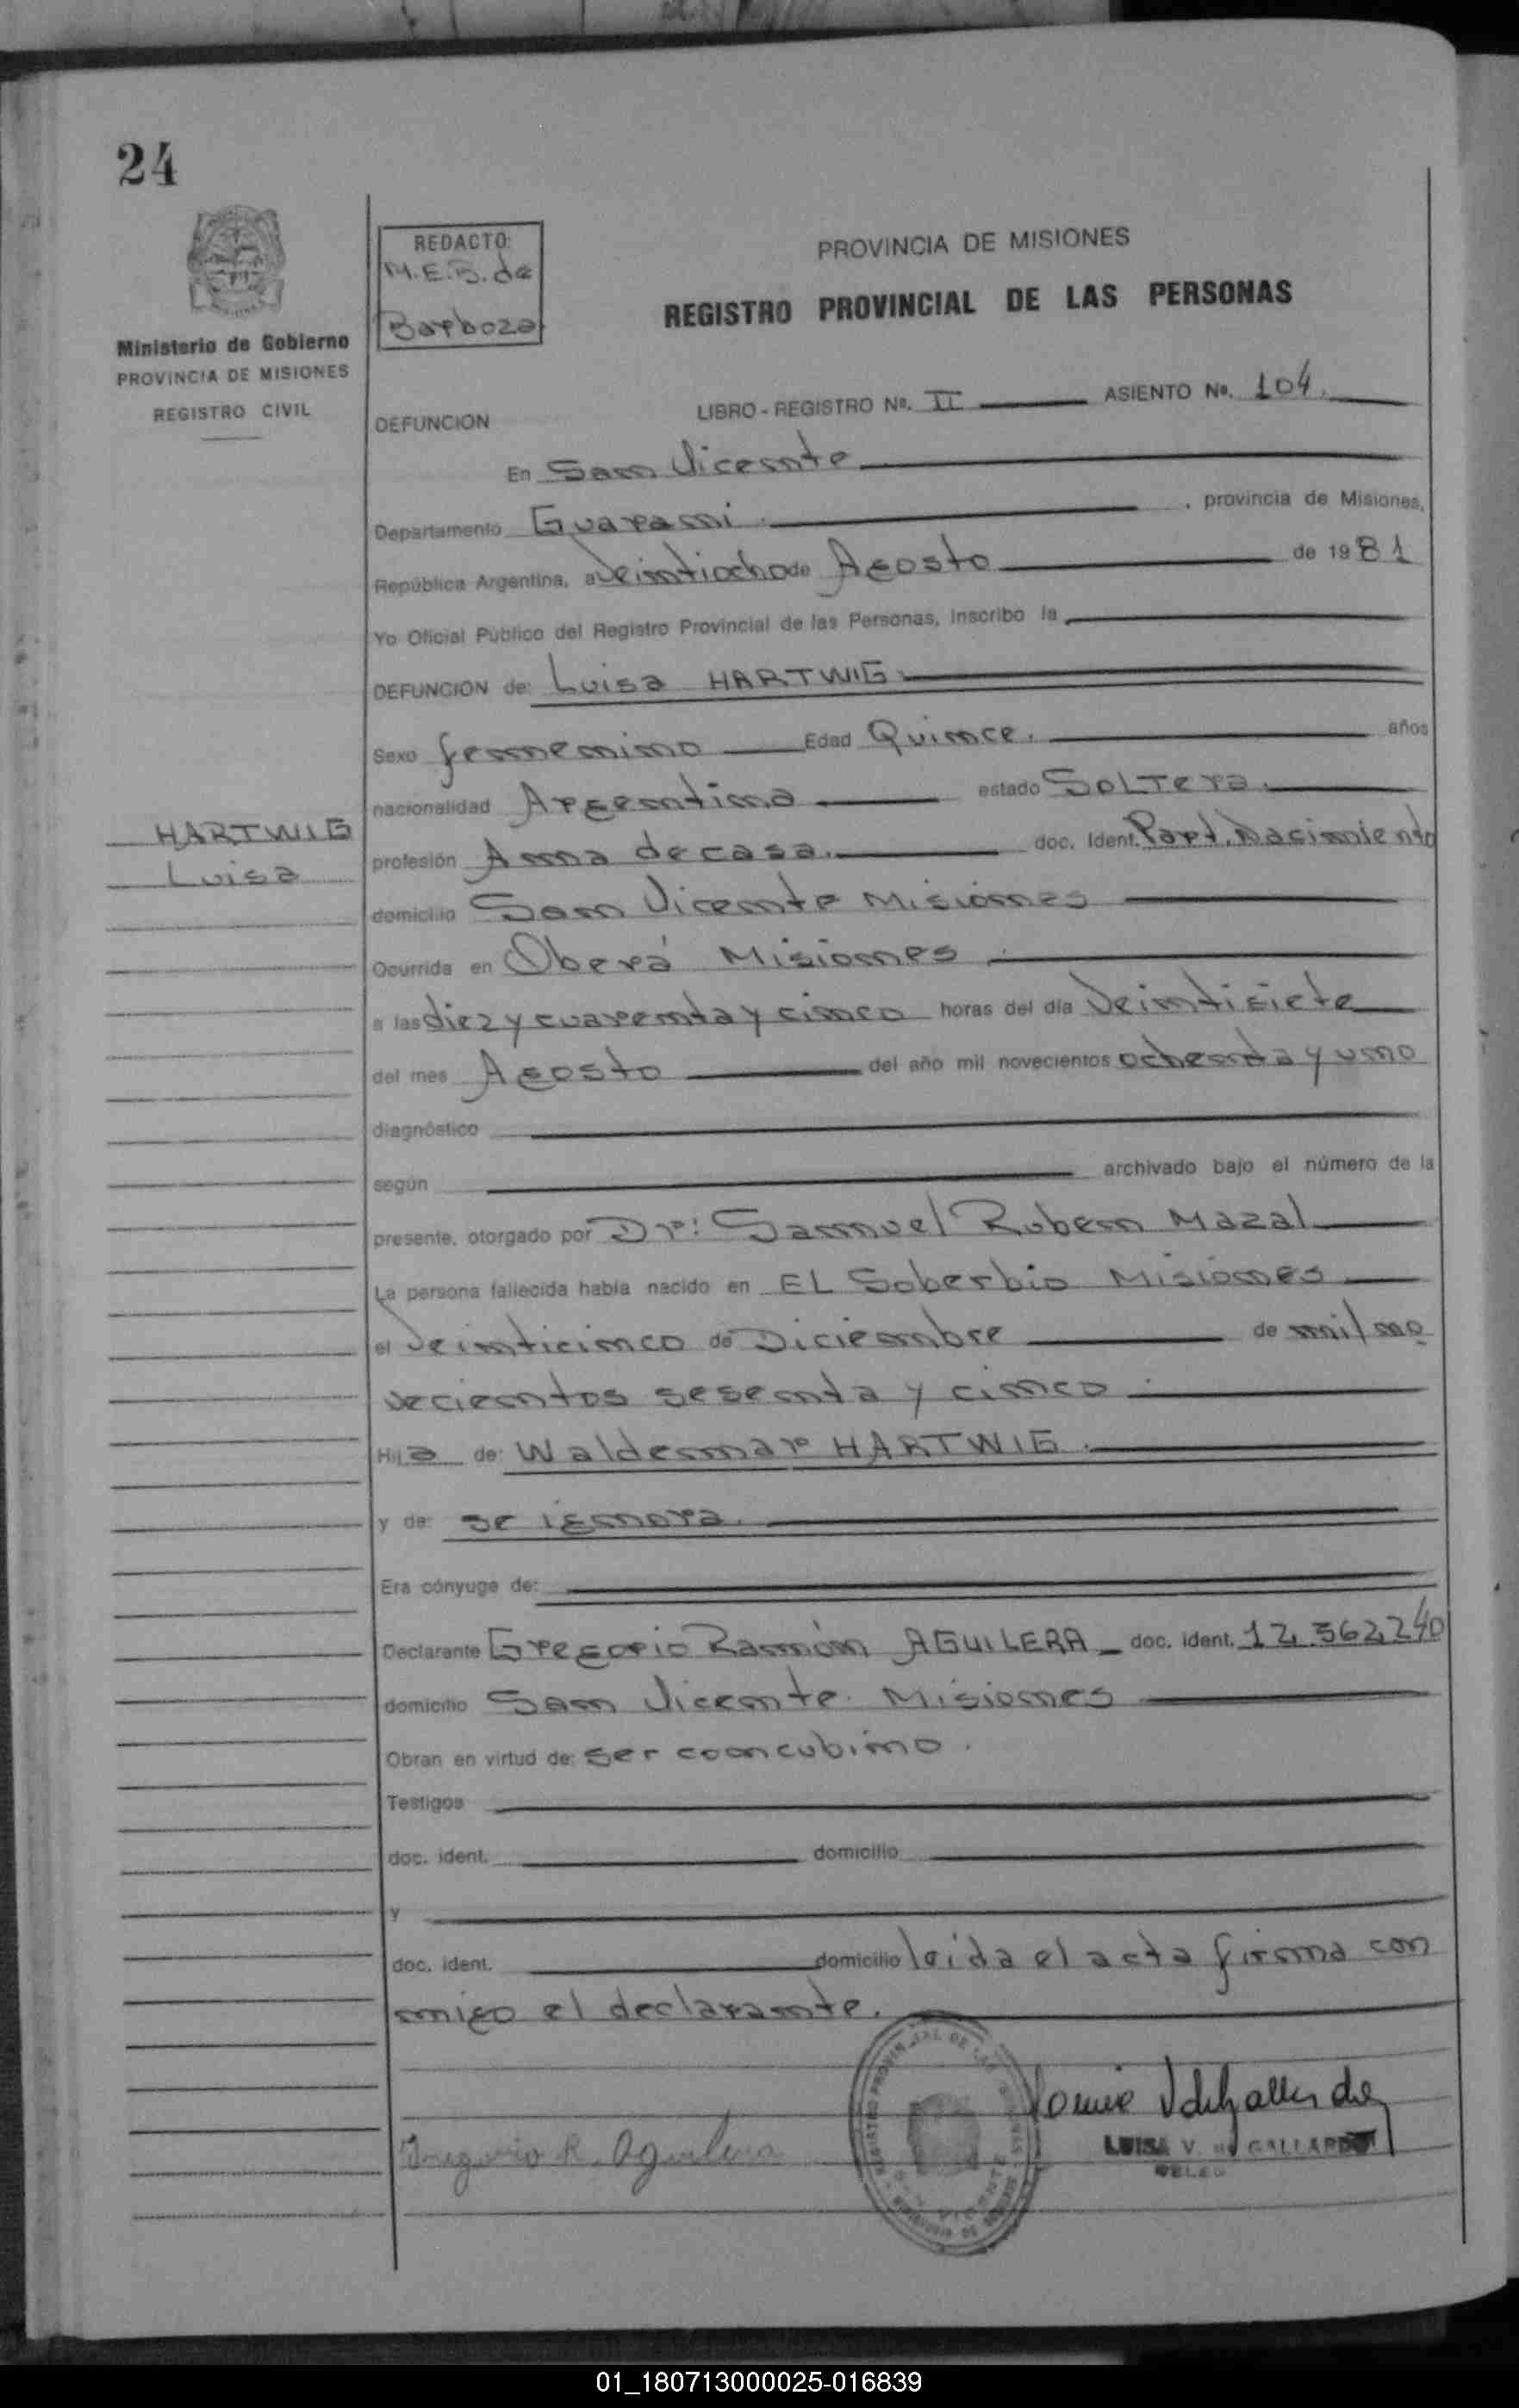 24
REDACTO:
M.E.B. de
Barboza
PROVINCIA DE MISIONES
REGISTRO PROVINCIAL DE LAS PERSONAS
Ministerio de Gobierno
PROVINCIA DE MISIONES
REGISTRO CIVIL
LIBRO - REGISTRO No. II ASIENTO No. 104.
DEFUNCION
En San Vicente
Departamento Guarani. , provincia de Misiones,
República Argentina, a Veintiocho de Agosto de 1981
Yo Oficial Público del Registro Provincial de las Personas, inscribo la
DEFUNCION de: Luisa HARTWIG
Sexo femenino Edad Quince. años
nacionalidad Argentina estado Soltera.
HARTWIG
Luisa
profesión Ama de casa. doc. Ident. Part. Nacimiento
domicilio San Vicente Misiones
Ocurrida en Oberá Misiones
a las diez y cuarenta y cinco horas del día Veintisiete
del mes Agosto del año mil novecientos ochenta y uno
diagnóstico
según archivado bajo el número de la
presente, otorgado por Dr: Samuel Ruben Mazal
La persona fallecida había nacido en EL Soberbio Misiones
el Veinticinco de Diciembre de mil no
vecientos sesenta y cinco
Hija de: Waldemar HARTWIG.
y de: se ignora.
Era cónyuge de:
Declarante Gregorio Ramón AGUILERA doc. ident. 12.562.240
domicilio San Vicente. Misiones
Obran en virtud de: ser concubino.
Testigos
doc. ident. domicilio
y
doc. ident. domicilio leida el acta firma con
migo el declarante.
Gregorio R. Aguilera
LUISA V. de GALLARDO